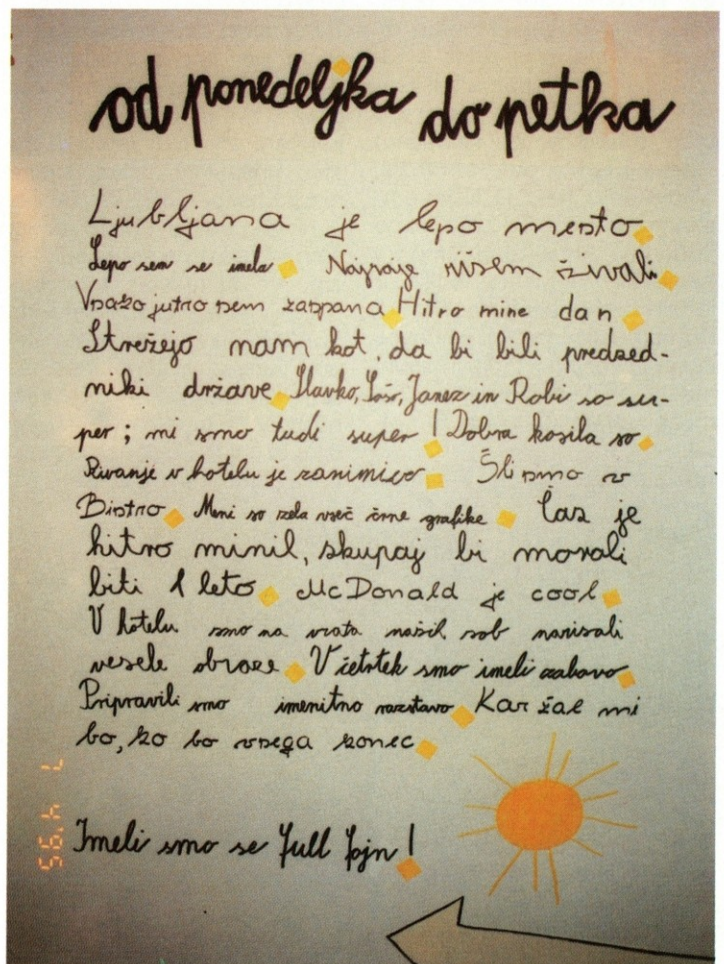 od ponedeljka do petka
Ljubljana je lepo mesto
Lepo sem se imela Najraje rišem živali
Vsako jutro sem zaspana Hitro mine dan
Strežejo nam kot, da bi bili predsed-
niki države Slavko, Sašo, Janez in Robi so su-
per; mi smo tudi super! Dobra kosila so
Bivanje v hotelu je zanimivo Šli smo v
Bistro Meni so zela všeč črne grafike Čas je
hitro minil, skupaj bi morali
biti 1 leto McDonald je cool
V hotelu smo na vrata naših sob narisali
vesele obraze V četrtek smo imeli zabavo
Pripravili smo imenitno razstavo Kar žal mi
bo, ko bo vsega konec
Imeli smo se full fajn!
7 4'95